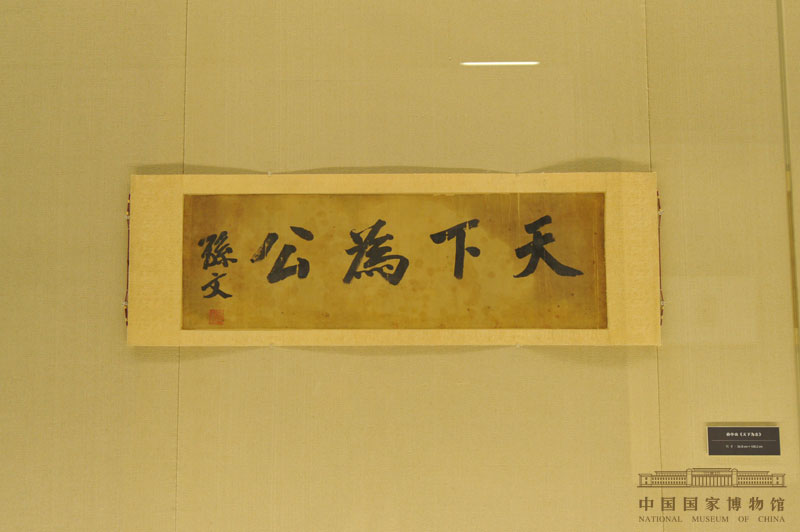 天下為公
孫文
孙中山《天下为公》
中国国家博物馆
NATIONAL MUSEUM OF CHINA